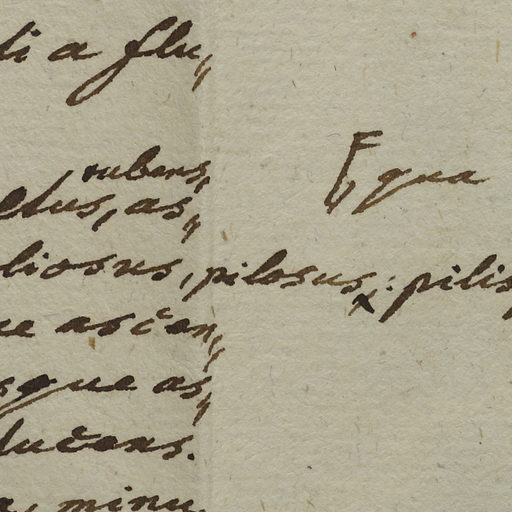 ti a flu„
rubens,
etus, as„
F qua
liosus, pilosus: pilis
ue ascen„
sque as„
lucens.
minu